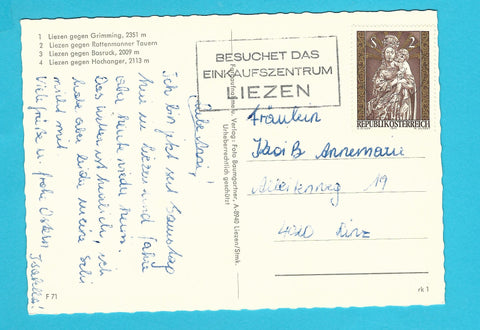 1 Liezen gegen Grimming, 2351 m
2 Liezen gegen Rottenmanner Tauern
3 Liezen gegen Bosruck, 2009 m
4 Liezen gegen Hochanger, 2113 m
BESUCHET DAS
EINKAUFSZENTRUM
LIEZEN
S 2
REPUBLIK ÖSTERREICH
Liebe
Ich bin jetzt seit Samstag
hier in Liezen und fahre
aber heute wieder heim.
Das Wetter ist herrlich, ich
habe aber leider meine Schi
nicht mit.
Viele Grüße u. frohe Ostern
Fräulein
Annemarie
19
4020 Linz
Verlag: Foto Baumgartner, A-8940 Liezen/Stmk.
Urheberrechtlich geschützt
F 71
rk 1